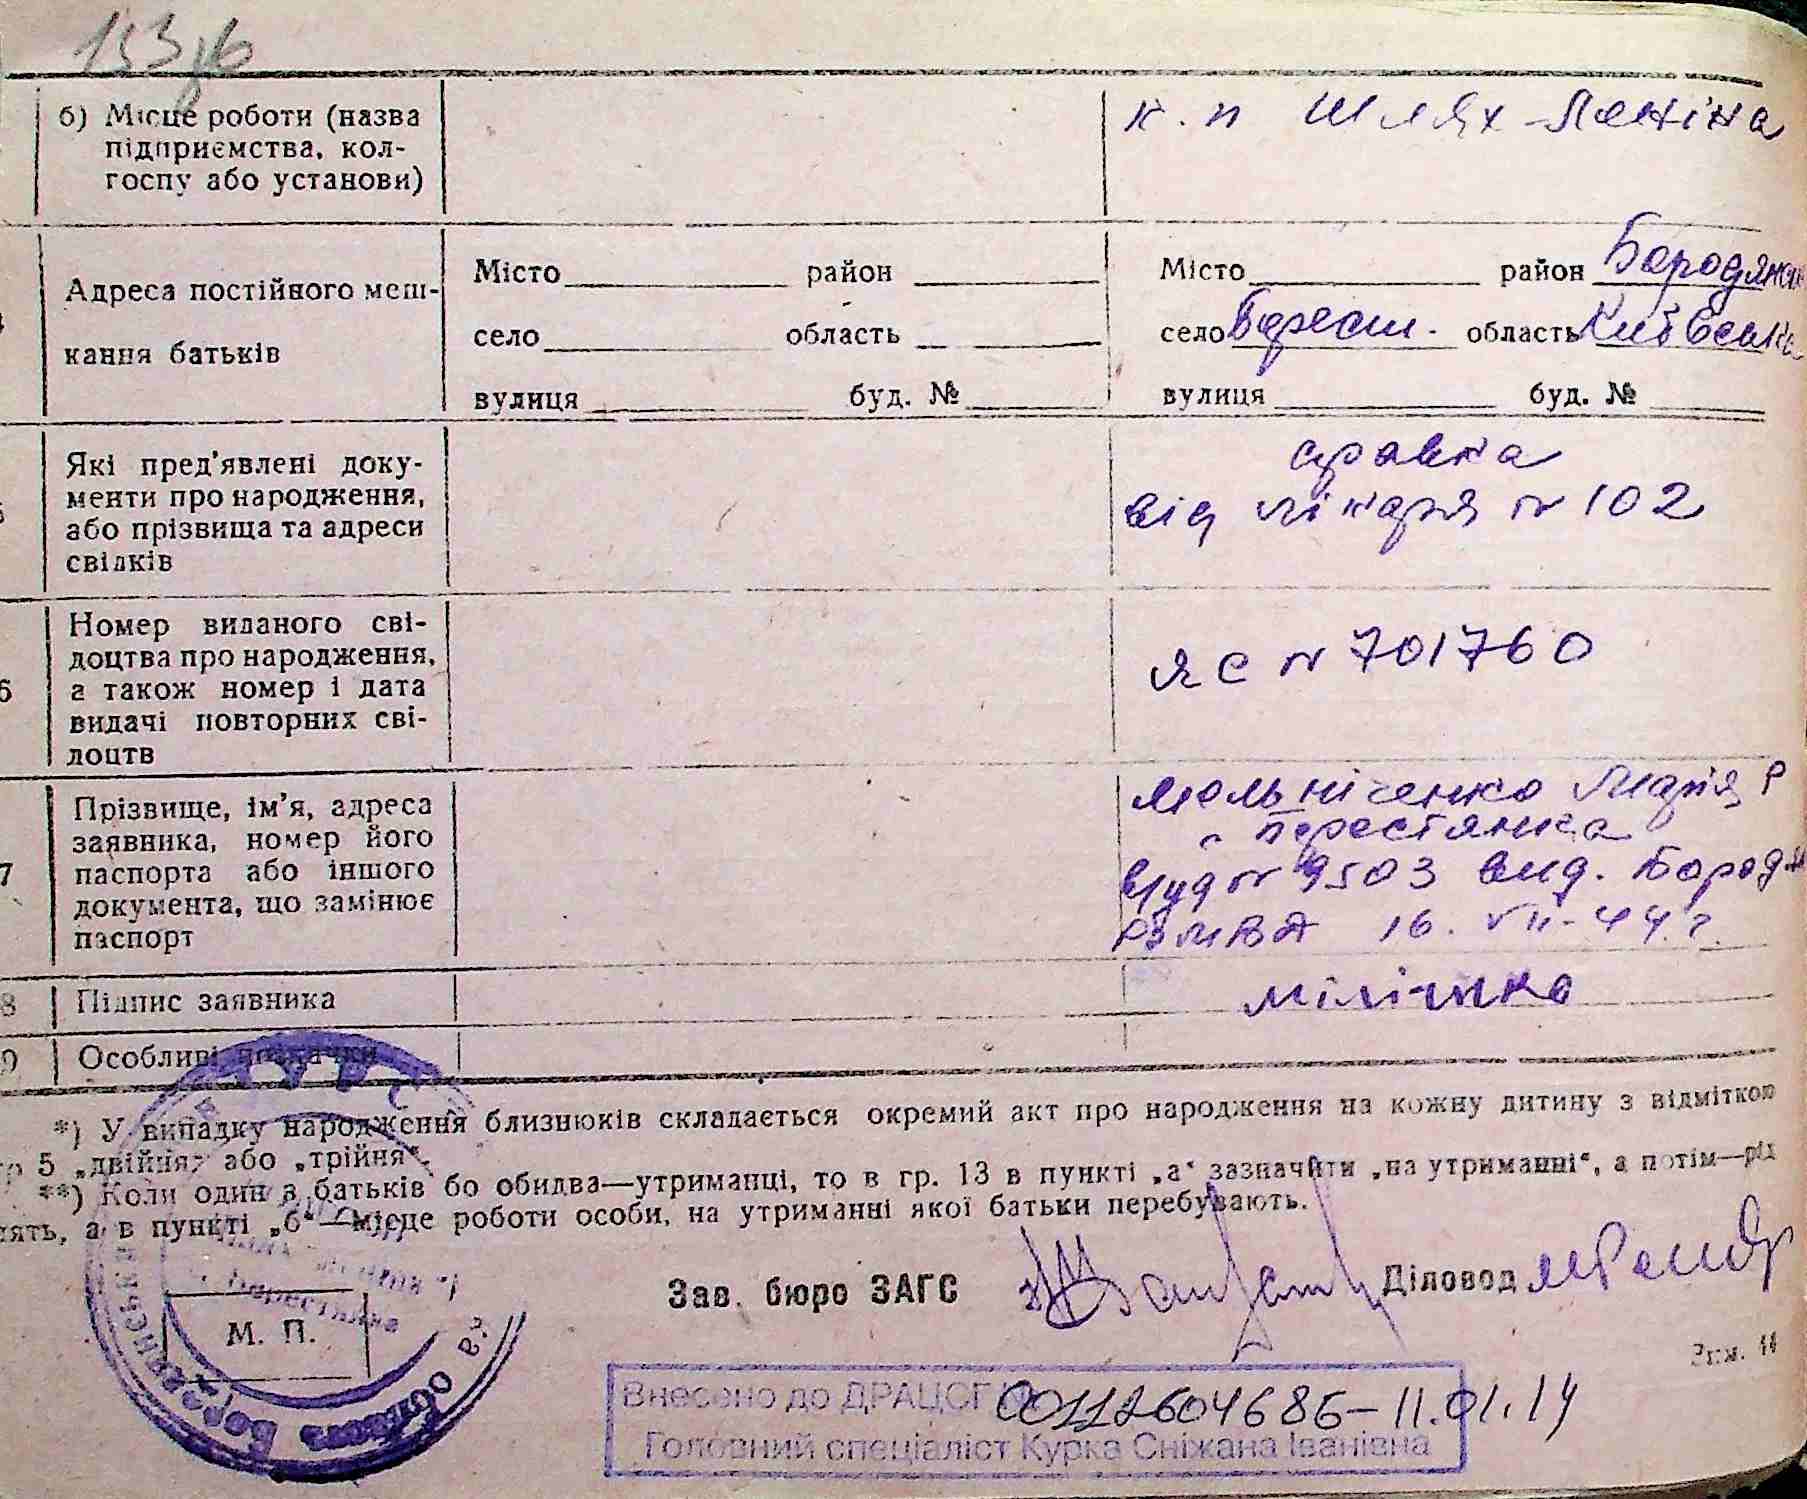 153зв
б) Місце роботи (назва
підприємства, кол-
госпу або установи)
к.п Шлях-Леніна
4
Адреса постійного меш-
кання батьків
Місто район
село область
вулиця буд. №
Місто район Бородянськ
село область Київська
вулиця буд. №
5
Які пред'явлені доку-
менти про народження,
або прізвища та адреси
свідків
від лікаря № 102
6
Номер виданого сві-
доцтва про народження,
а також номер і дата
видачі повторних сві-
доцтв
ЯС № 701760
7
Прізвище, ім'я, адреса
заявника, номер його
паспорта або іншого
документа, що замінює
паспорт
Мельніченко Марія Р
Перестянка
№ 9503 вид. Бородян
16. VII-44 г.
8
Підпис заявника
9
Особливі позначки
*) У випадку народження близнюків складається окремий акт про народження на кожну дитину з відміткою
гр 5 „двійня" або „трійня".
**) Коли один з батьків бо обидва—утриманці, то в гр. 13 в пункті „а" зазначити „на утриманні", а потім—рід
а в пункті „б"—місце роботи особи, на утриманні якої батьки перебувають.
Зав. бюро ЗАГС
Діловод
М. П.
Зам. 44
Внесено до ДРАЦСГ № 00112604686-11.01.14
Головний спеціаліст Курка Сніжана Іванівна